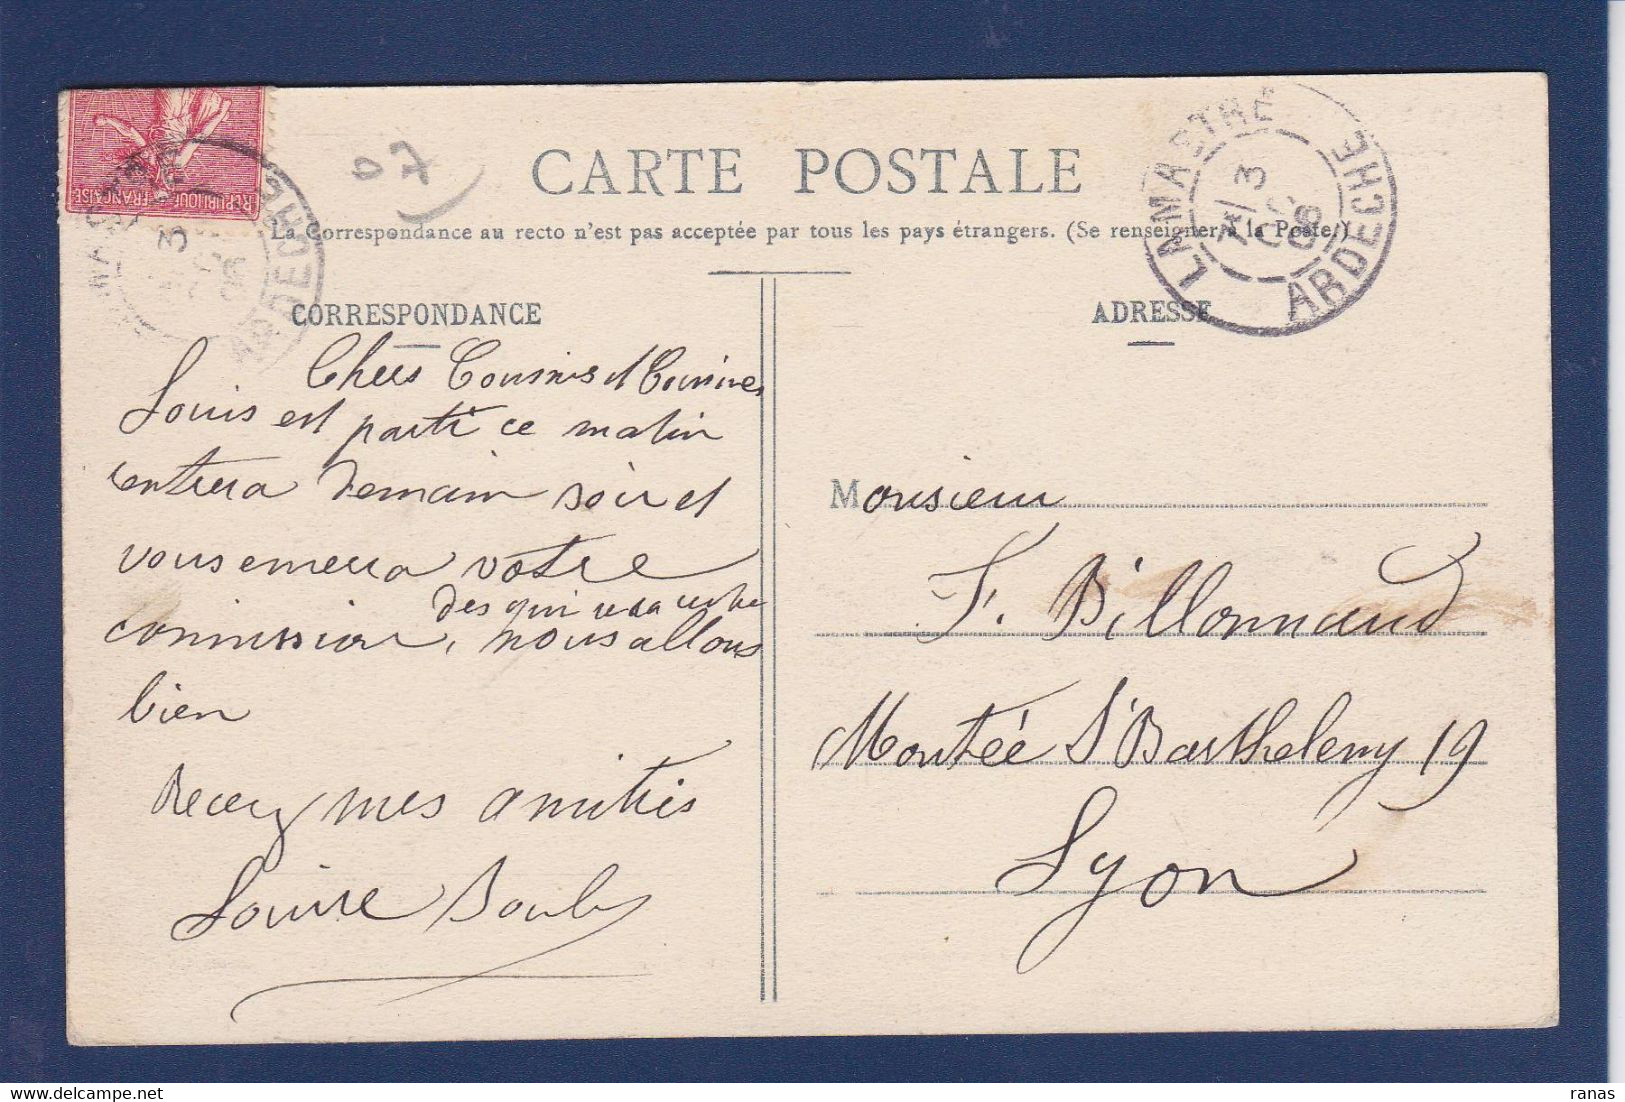 CARTE POSTALE
La Correspondance au recto n'est pas acceptée par tous les pays étrangers. (Se renseigner à la Poste.)
REPUBLIQUE FRANÇAISE
07
LAMASTRE
ARDECHE
3
06
CORRESPONDANCE
Chers Cousins et Cousines
Louis est parti ce matin
rentrera demain soir et
vous emerra votre
des qui
commission, nous allons
bien
Recevez mes amitiés
Louise
ADRESSE
Monsieur
F. Billonnaud
Montée St Barthelemy 19
Lyon
ranas